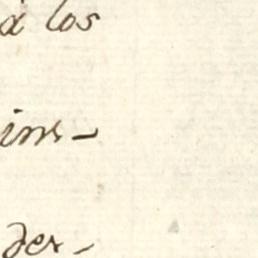 á los
ins-
der-